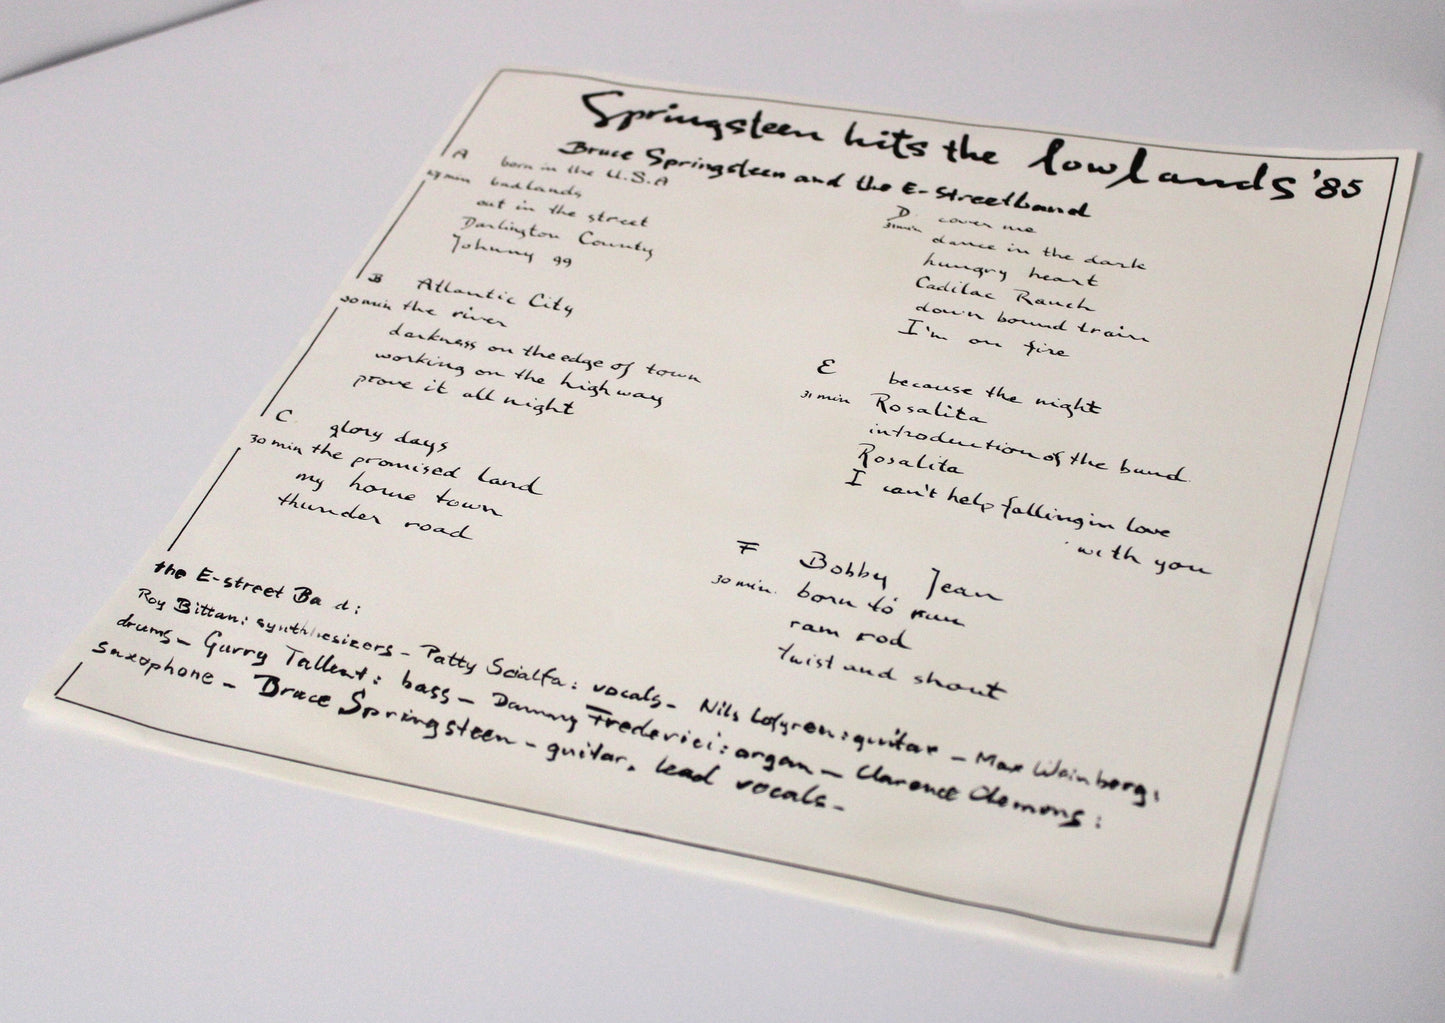 Springsteen hits the lowlands '85
Bruce Springsteen and the E-streetband
A born in the U.S.A
29 min badlands
out in the street
Darlington County
Johnny 99
B Atlantic City
30 min the river
darkness on the edge of town
working on the highway
prove it all night
C. glory days
30 min the promised land
my home town
thunder road
D. cover me
31 min dance in the dark
hungry heart
Cadilac Ranch
down bound train
I'm on fire
E because the night
31 min Rosalita
introduction of the band
Rosalita
I can't help falling in love
with you
F Bobby Jean
30 min. born to run
ram rod
twist and shout
the E-street Ba d:
Roy Bittan: synthhesizers - Patty Scialfa: vocals - Nils Lofgren: guitar - Max Wainberg:
drums - Garry Tallent: bass - Danny Frederici: organ - Clarence Clemons:
saxophone - Bruce Springsteen - guitar, lead vocals -